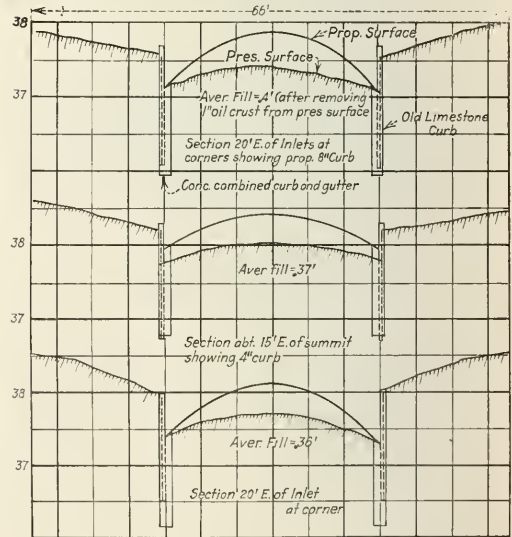 66'
38
Prop. Surface
Pres. Surface
37
Aver. Fill=.4' (after removing
1"oil crust from pres surface
Old Limestone
Curb
Section 20'E. of Inlets at
corners showing prop. 8"Curb
Conc. combined curb and gutter
38
Aver fill=.37'
37
Section abt. 15'E. of summit
showing 4"curb
38
Aver. Fill=.36'
37
Section 20'E. of Inlet
at corner